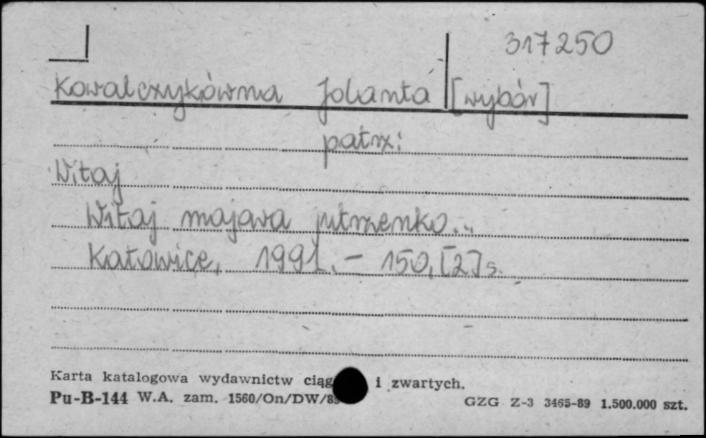 317250
Kowalczykówna Jolanta [wybór]
patrz:
Witaj
Witaj majowa jutrzenko...
Katowice, 1991. – 150, [2] s.
Karta katalogowa wydawnictw ciąg i zwartych.
Pu-B-144 W.A. zam. 1560/On/DW/89 GZG Z-3 3465-89 1.500.000 szt.